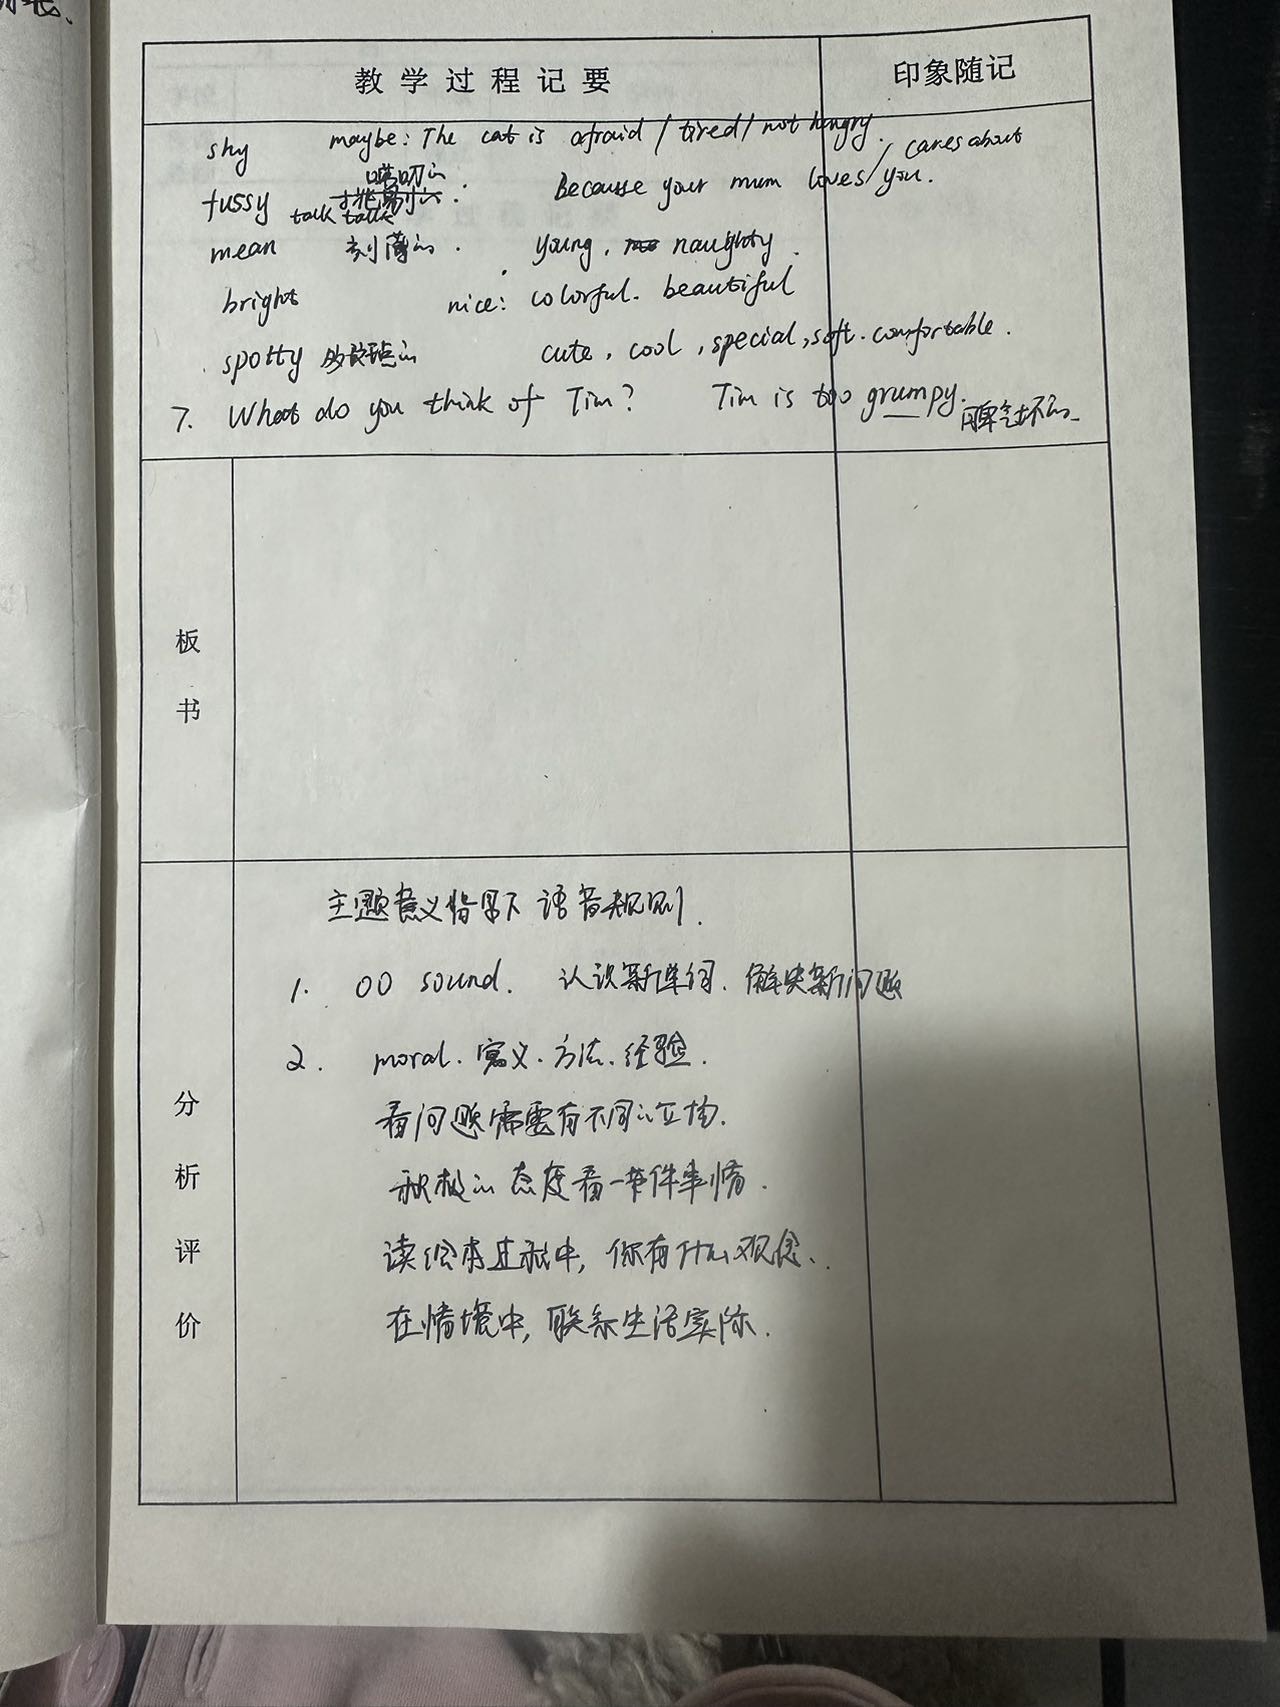 教学过程记要 印象随记
shy maybe: The cat is afraid / tired / not hungry.
fussy 唠叨的. Because your mum loves / cares about you.
talk talk
mean 刻薄的. young, naughty.
bright nice: colorful. beautiful
spotty 多斑点的 cute, cool, special, soft. comfortable.
7. What do you think of Tim? Tim is too grumpy. 脾气坏的
板书
主题意义背景下 语音规则.
1. oo sound. 认识新单词. 解决新问题
2. moral. 寓义. 方法. 经验.
看问题需要有不同的立场.
积极的态度看一件事情.
读绘本过程中, 你有什么观念.
在情境中, 联系生活实际.
分析评价